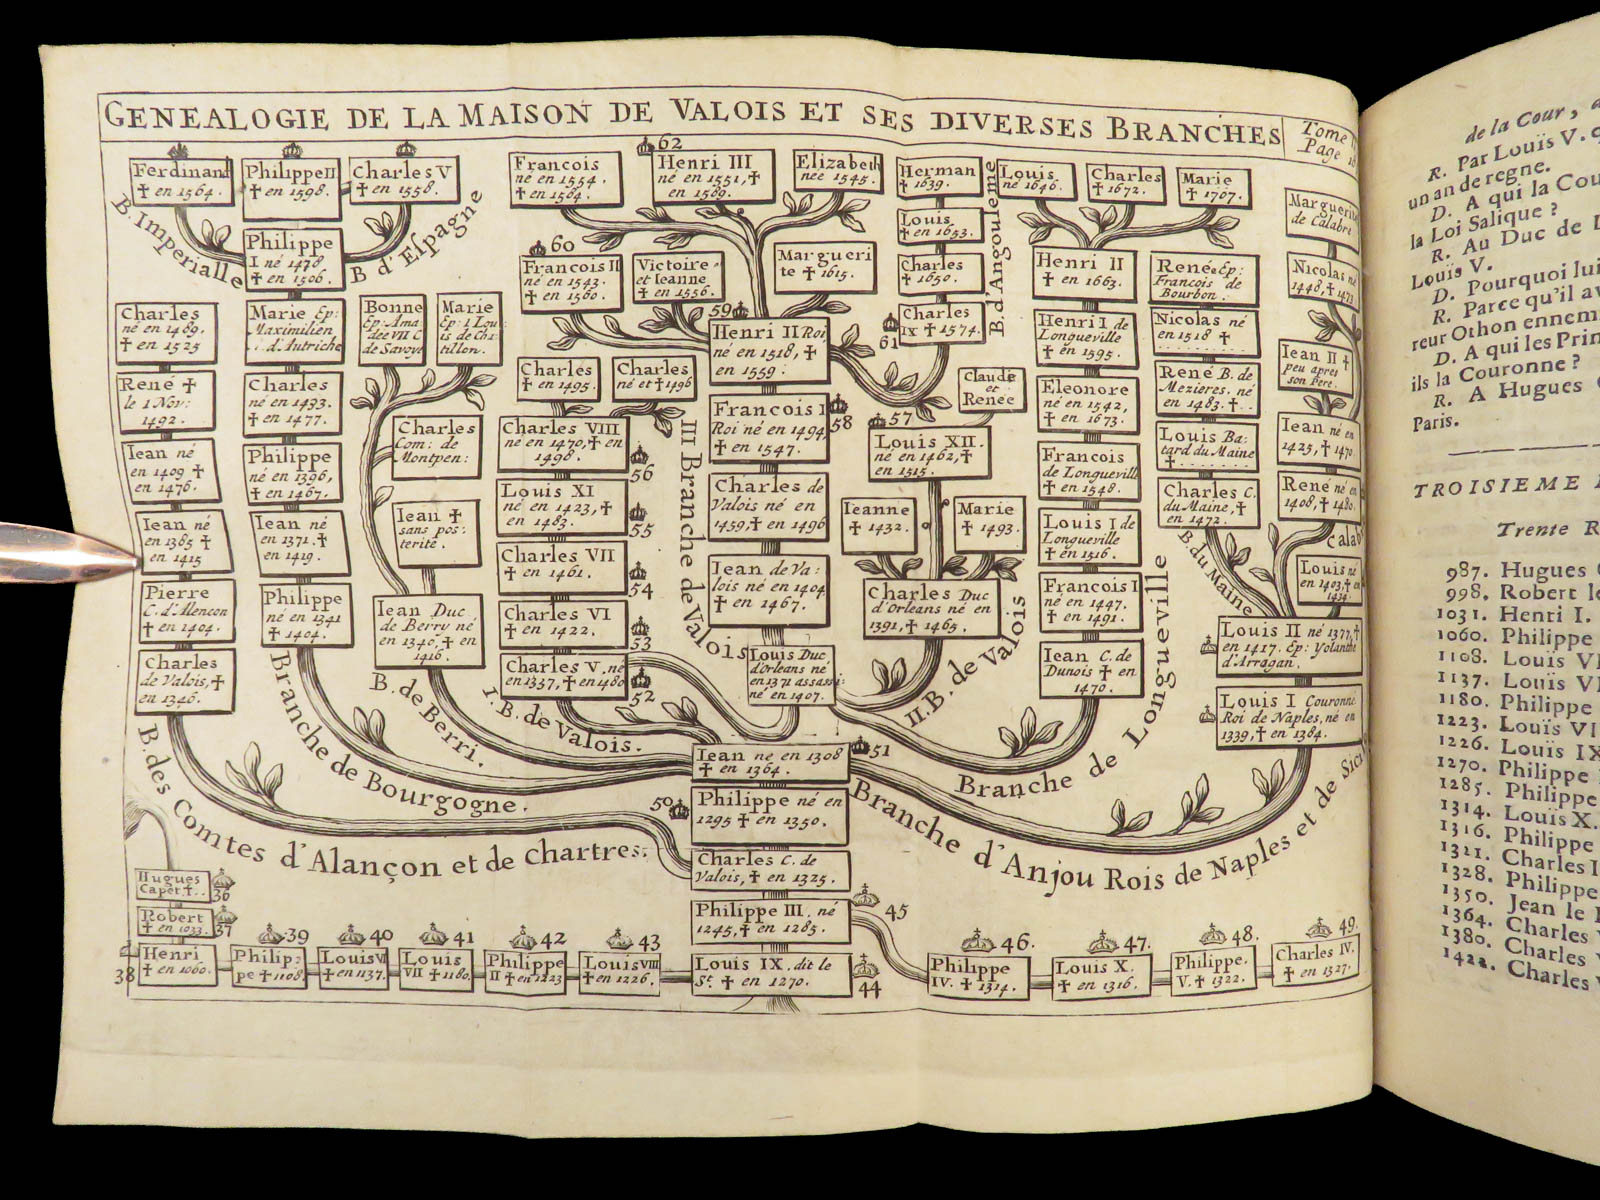 GENEALOGIE DE LA MAISON DE VALOIS ET SES DIVERSES BRANCHES
Tome
Page
Ferdinand
✝ en 1564.
Philippe II
✝ en 1598.
Charles V
✝ en 1558.
B. Imperialle
B d'Espagne
Philippe
I né 1478
✝ en 1506.
Charles
né en 1489.
✝ en 1525
René ✝
le 1 Nov:
1492.
Iean né
en 1409 ✝
en 1476.
Iean né
en 1385 ✝
en 1415
Pierre
C. d'Alencon
✝ en 1404.
Charles
de Valois, ✝
en 1346.
B. des Comtes d'Alançon et de Chartres.
Marie Ep:
Maximilien
d'Autriche
Charles
né en 1433.
✝ en 1477.
Philippe
né en 1396,
✝ en 1467.
Iean né
en 1371. ✝
en 1419.
Philippe
né en 1341
✝ 1404.
Branche de Bourgogne.
Bonne
Ep: Ama
dée VII C
de Savoye
Marie
Ep: 1 Lou
is de Cha
tillon.
Charles
Com: de
Montpen:
Iean ✝
sans pos:
terité.
Iean Duc
de Berry né
en 1340, ✝ en
1416.
B. de Berri.
Francois
né en 1554.
✝ en 1584.
62
Henri III
né en 1551, ✝
en 1589.
Elizabeth
née 1545.
60
Francois II
né en 1543.
✝ en 1560.
Victoire
et Ieanne
✝ en 1556.
Margueri
te ✝ 1615.
59
Henri II Roi
né en 1518, ✝
en 1559.
Charles
✝ en 1495.
Charles
né et ✝ 1496
Charles VIII
né en 1470, ✝ en
1498.
56
Louis XI
né en 1423, ✝
en 1483.
55
Charles VII
✝ en 1461.
54
Charles VI
✝ en 1422.
53
Charles V. né
en 1337, ✝ en 1480
52
I. B. de Valois.
III Branche de Valois
Francois I
Roi né en 1494
✝ en 1547.
58
Charles de
Valois né en
1459, ✝ en 1496
Iean de Va:
lois né en 1404
✝ en 1467.
Louis Duc
d'Orleans né
en 1371 assassi
né en 1407.
Herman
✝ 1639.
Louis
✝ en 1653.
Charles
✝ 1650.
Charles
IX ✝ 1574.
61
B. d'Angouleme
Claude
et
Renée
57
Louis XII.
né en 1462, ✝
en 1515.
Ieanne
✝ 1432.
Marie
✝ 1493.
Charles Duc
d'Orleans né en
1391, ✝ 1465.
II. B. de Valois
Louis
né 1646.
Charles
✝ 1672.
Marie
✝ 1707.
Henri II
✝ en 1663.
Henri I de
Longueville
✝ en 1595.
Eleonore
né en 1542,
✝ en 1673.
Francois
de Longueville
✝ en 1548.
Louis I de
Longueville
✝ en 1516.
Francois I
né en 1447.
✝ en 1491.
Iean C. de
Dunois ✝ en
1470.
Branche de Longueville
Renée Ep:
Francois de
Bourbon.
Nicolas né
en 1518 ✝
René B. de
Mezieres. né
en 1483. ✝
Louis Ba:
tard du Maine
✝
Charles C.
du Maine, ✝
en 1472.
B. du Maine
Marguerite
de Calabre
Nicolas né
1448, ✝ 1473
Iean II ✝
peu apres
son Pere.
Iean né en
1425, ✝ 1470
René né en
1408, ✝ 1480.
Calab
Louis né
en 1403, ✝ en
1434.
Louis II né 1377, ✝
en 1417. Ep: Yolanthe
d'Arragan.
Louis I Couronné
Roi de Naples, né en
1339, ✝ en 1384.
Branche d'Anjou Rois de Naples et de Sici
Iean né en 1308
✝ en 1364.
51
50
Philippe né en
1295 ✝ en 1350.
Charles C. de
Valois, ✝ en 1325.
Philippe III. né
1245, ✝ en 1285.
45
Hugues
Capet ✝
36
Robert
✝ en 1033.
37
38
Henri
✝ en 1060.
39
Philip:
pe ✝ 1108
40
Louis VI
✝ en 1137.
41
Louis
VII ✝ 1180.
42
Philippe
II ✝ en 1223
43
Louis VIII
✝ en 1226.
Louis IX. dit le
St. ✝ en 1270.
44
46.
Philippe
IV. ✝ 1314.
47.
Louis X.
✝ en 1316.
48.
Philippe.
V. ✝ 1322.
49.
Charles IV.
✝ en 1327.
de la Cour,
R. Par Louïs V. q
un an de regne.
D. A qui la Cou
la Loi Salique ?
R. Au Duc de L
Louïs V.
D. Pourquoi lui
R. Parce qu'il av
reur Othon ennem
D. A qui les Prin
ils la Couronne ?
R. A Hugues
Paris.
TROISIEME
Trente R
987. Hugues
998. Robert le
1031. Henri I.
1060. Philippe
1108. Louïs VI
1137. Louïs VI
1180. Philippe
1223. Louïs VI
1226. Louïs IX
1270. Philippe
1285. Philippe
1314. Louïs X.
1316. Philippe
1321. Charles I
1328. Philippe
1350. Jean le
1364. Charles V
1380. Charles V
1422. Charles V